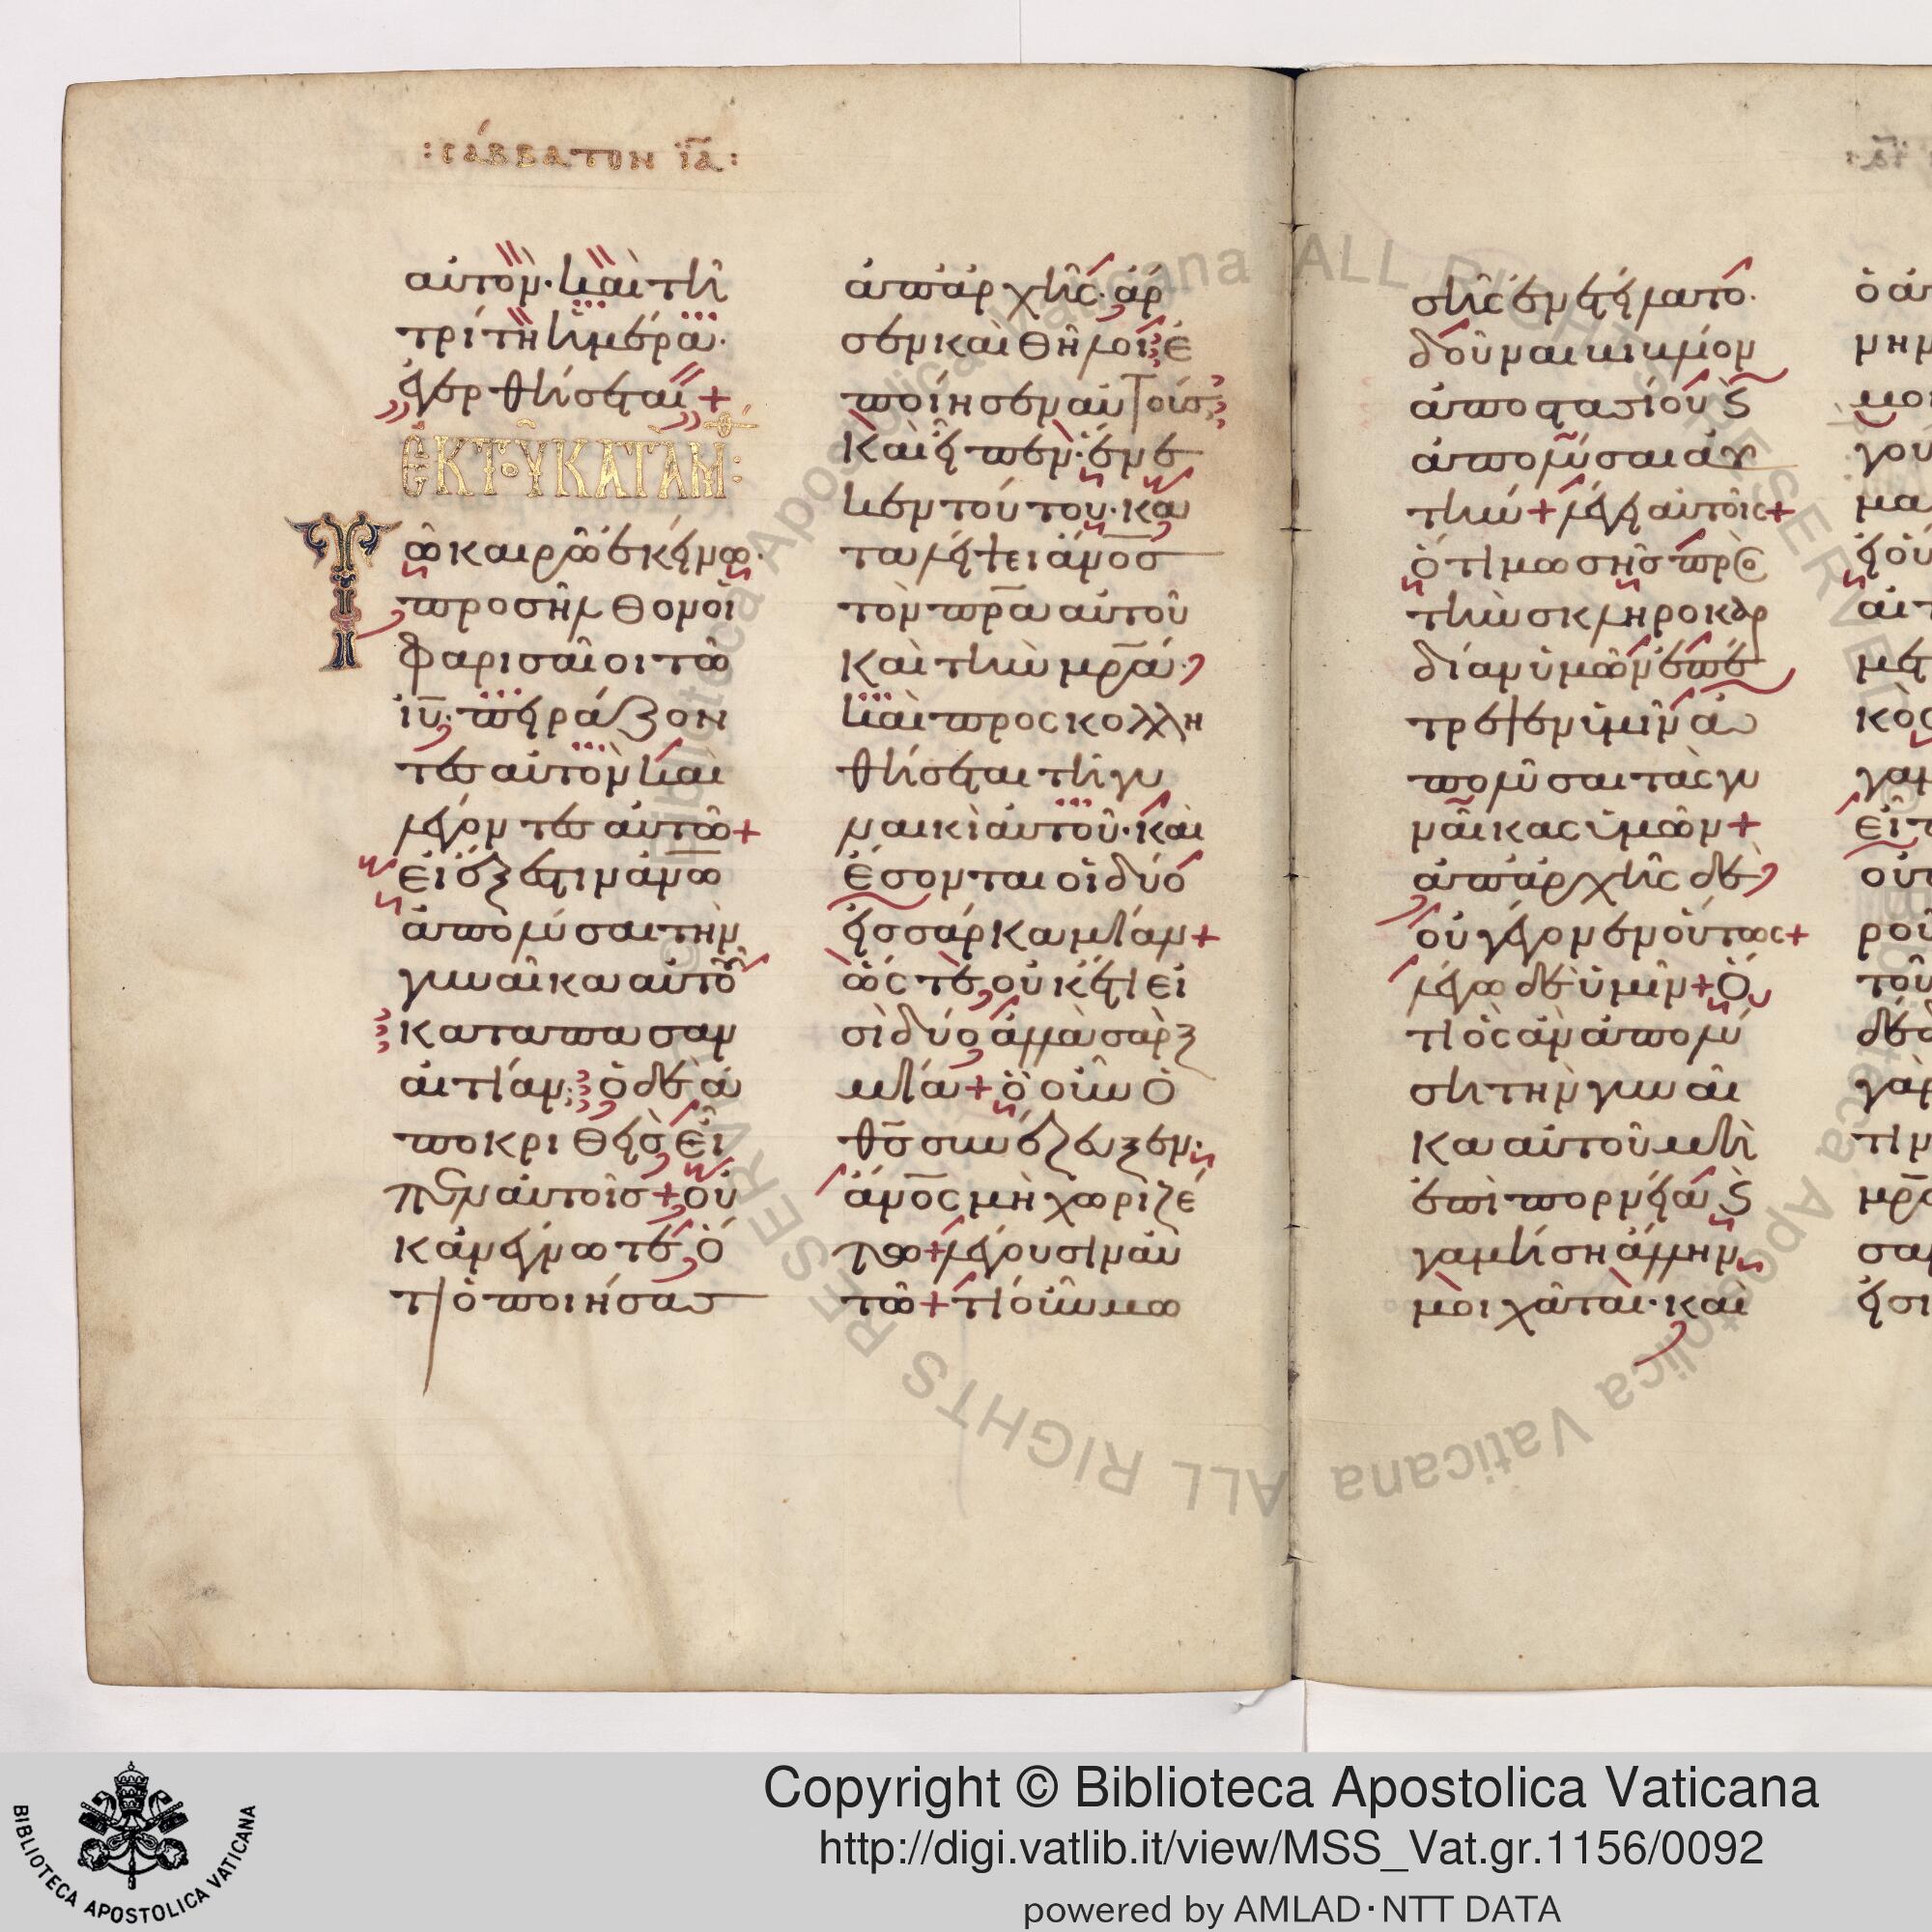 :σάββατον ϊα:
αὐτὸν· καὶ τῆ
τρίτη ἡμέρα·
ἐγερθήσεται+
ἐκ τοῦ κατὰ Μ:
Τῶ καιρῶ ἐκείνω·
προσῆλθον οἱ
φαρισαῖοι τῶ
ιυ· πειράζον
τες αὐτὸν καὶ
λέγοντες αὐτῶ+
εἰ ἔξεστιν ανω
ἀπολύσαι τὴν
γυναῖκα αὐτοῦ
κατὰ πᾶσαν
αἰτίαν; ὁ δὲ ἀ
ποκριθεὶς εἶ
πεν αὐτοῖς+οὐ
κ ἀνέγνωτε, ὅ
τι ὁ ποιήσας
ἀπ' ἀρχῆς· ἄρ
σεν καὶ θῆλοι ἐ
ποίησεν αὐτούς
καὶ εἶπεν· ἕνε
κεν τούτου· κα
ταλείψει ανος
τὸν πρα αὐτοῦ
καὶ τὴν μρα·
καὶ προσκολλη
θήσεται τῆ γυ
ναικὶ αὐτοῦ· καὶ
ἔσονται οἱ δύο
εἰς σάρκα μίαν+
ὥστε οὐκέτι εἰ
σὶ δύο ἀλλὰ σὰρξ
μία+ὃ οὖν ὁ
θς συνέζευξεν·
ανος μὴ χωριζέ
τω+λέγουσιν αὐ
τῶ+τί οὖν μω
σῆς ἐνετείλατο·
δοῦναι βιβλίον
ἀποστασίου καὶ
ἀπολῦσαι αὐ
τήν+λέγει αὐτοῖς+
ὅτι μωσῆς πρὸς
τὴν σκληροκαρ
δίαν ὑμῶν ἐπέ
τρεψεν ὑμῖν ἀ
πολῦσαι τὰς γυ
ναῖκας ὑμῶν+
ἀπ' ἀρχῆς δὲ
οὐ γέγονεν οὕτως+
λέγω δὲ ὑμῖν+ὅ
τι ὃς ἂν ἀπολύ
ση τὴν γυναῖ
κα αὐτοῦ μὴ
ἐπὶ πορνεία καὶ
γαμήση ἄλλην
μοιχᾶται· καὶ
Copyright © Biblioteca Apostolica Vaticana
http://digi.vatlib.it/view/MSS_Vat.gr.1156/0092
powered by AMLAD·NTT DATA
BIBLIOTECA APOSTOLICA VATICANA